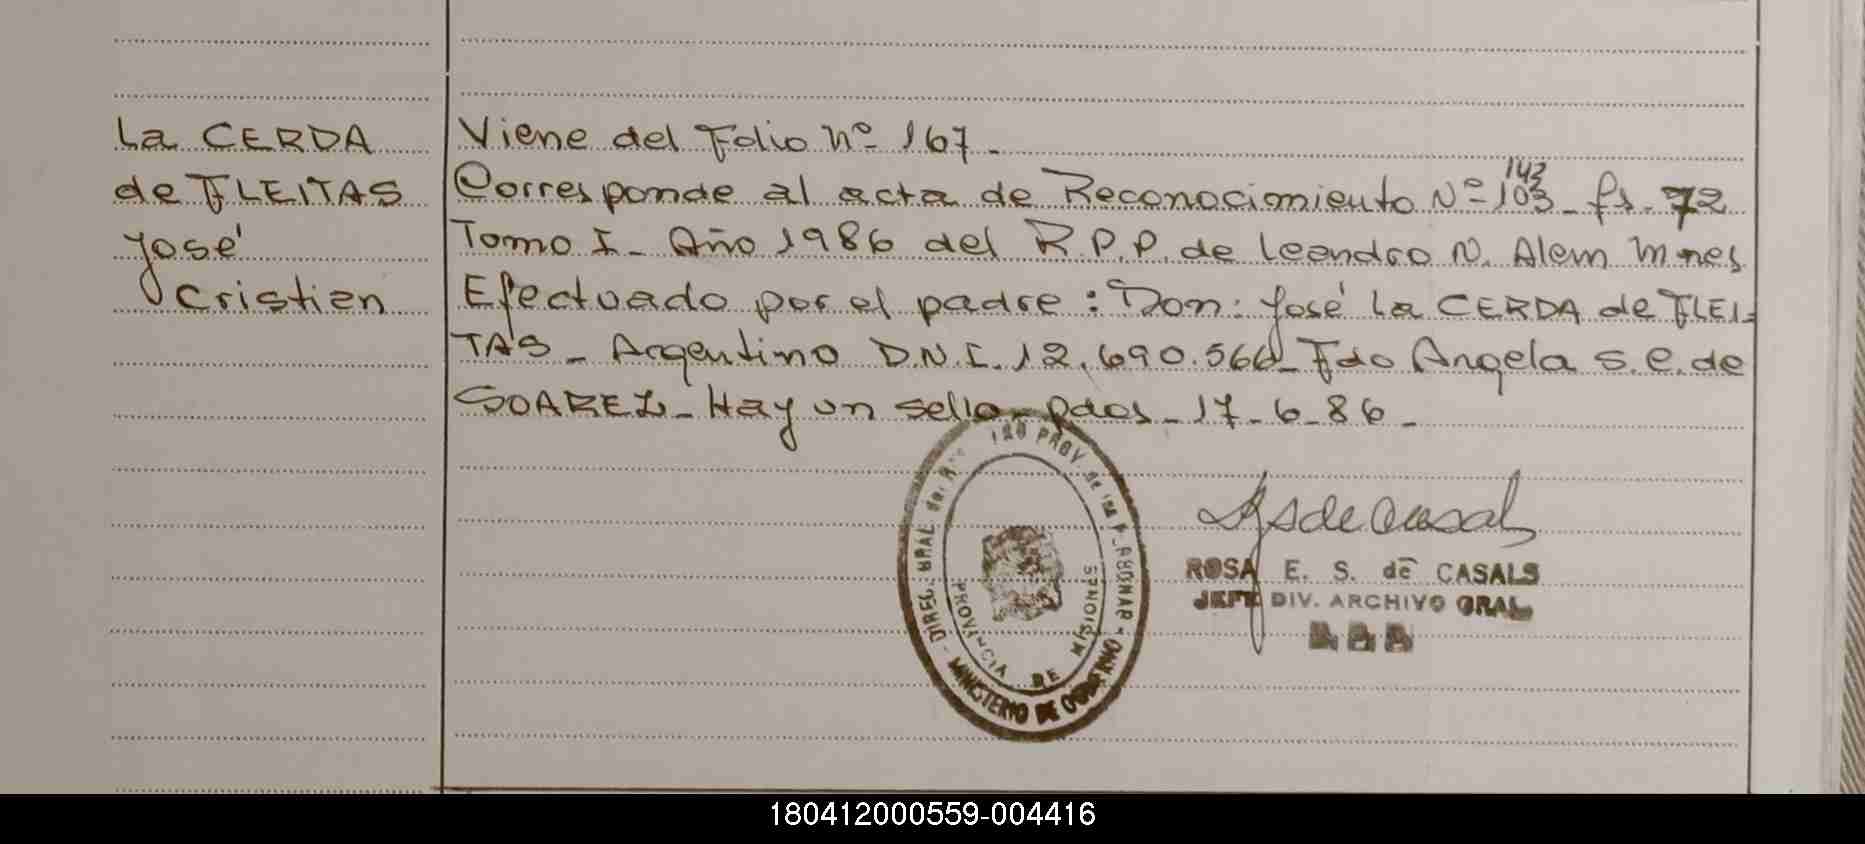 La CERDA
de FLEITAS
José
Cristian
Viene del Folio Nº 167.-
Corresponde al acta de Reconocimiento Nº 103 143 - fs. 72
Tomo I - Año 1986 del R.P.P. de Leandro N. Alem Mnes
Efectuado por el padre: Don: José La CERDA de FLEI-
TAS - Argentino D.N.I. 12.690.566 - Fdo Angela S. E. de
SOAREZ - Hay un sello - pdas - 17-6-86 -
PROV de las
PROVINCIA DE MISIONES
MINISTERIO DE GOBIERNO
ROSA E. S. de CASALS
JEFE DIV. ARCHIVO GRAL
180412000559-004416